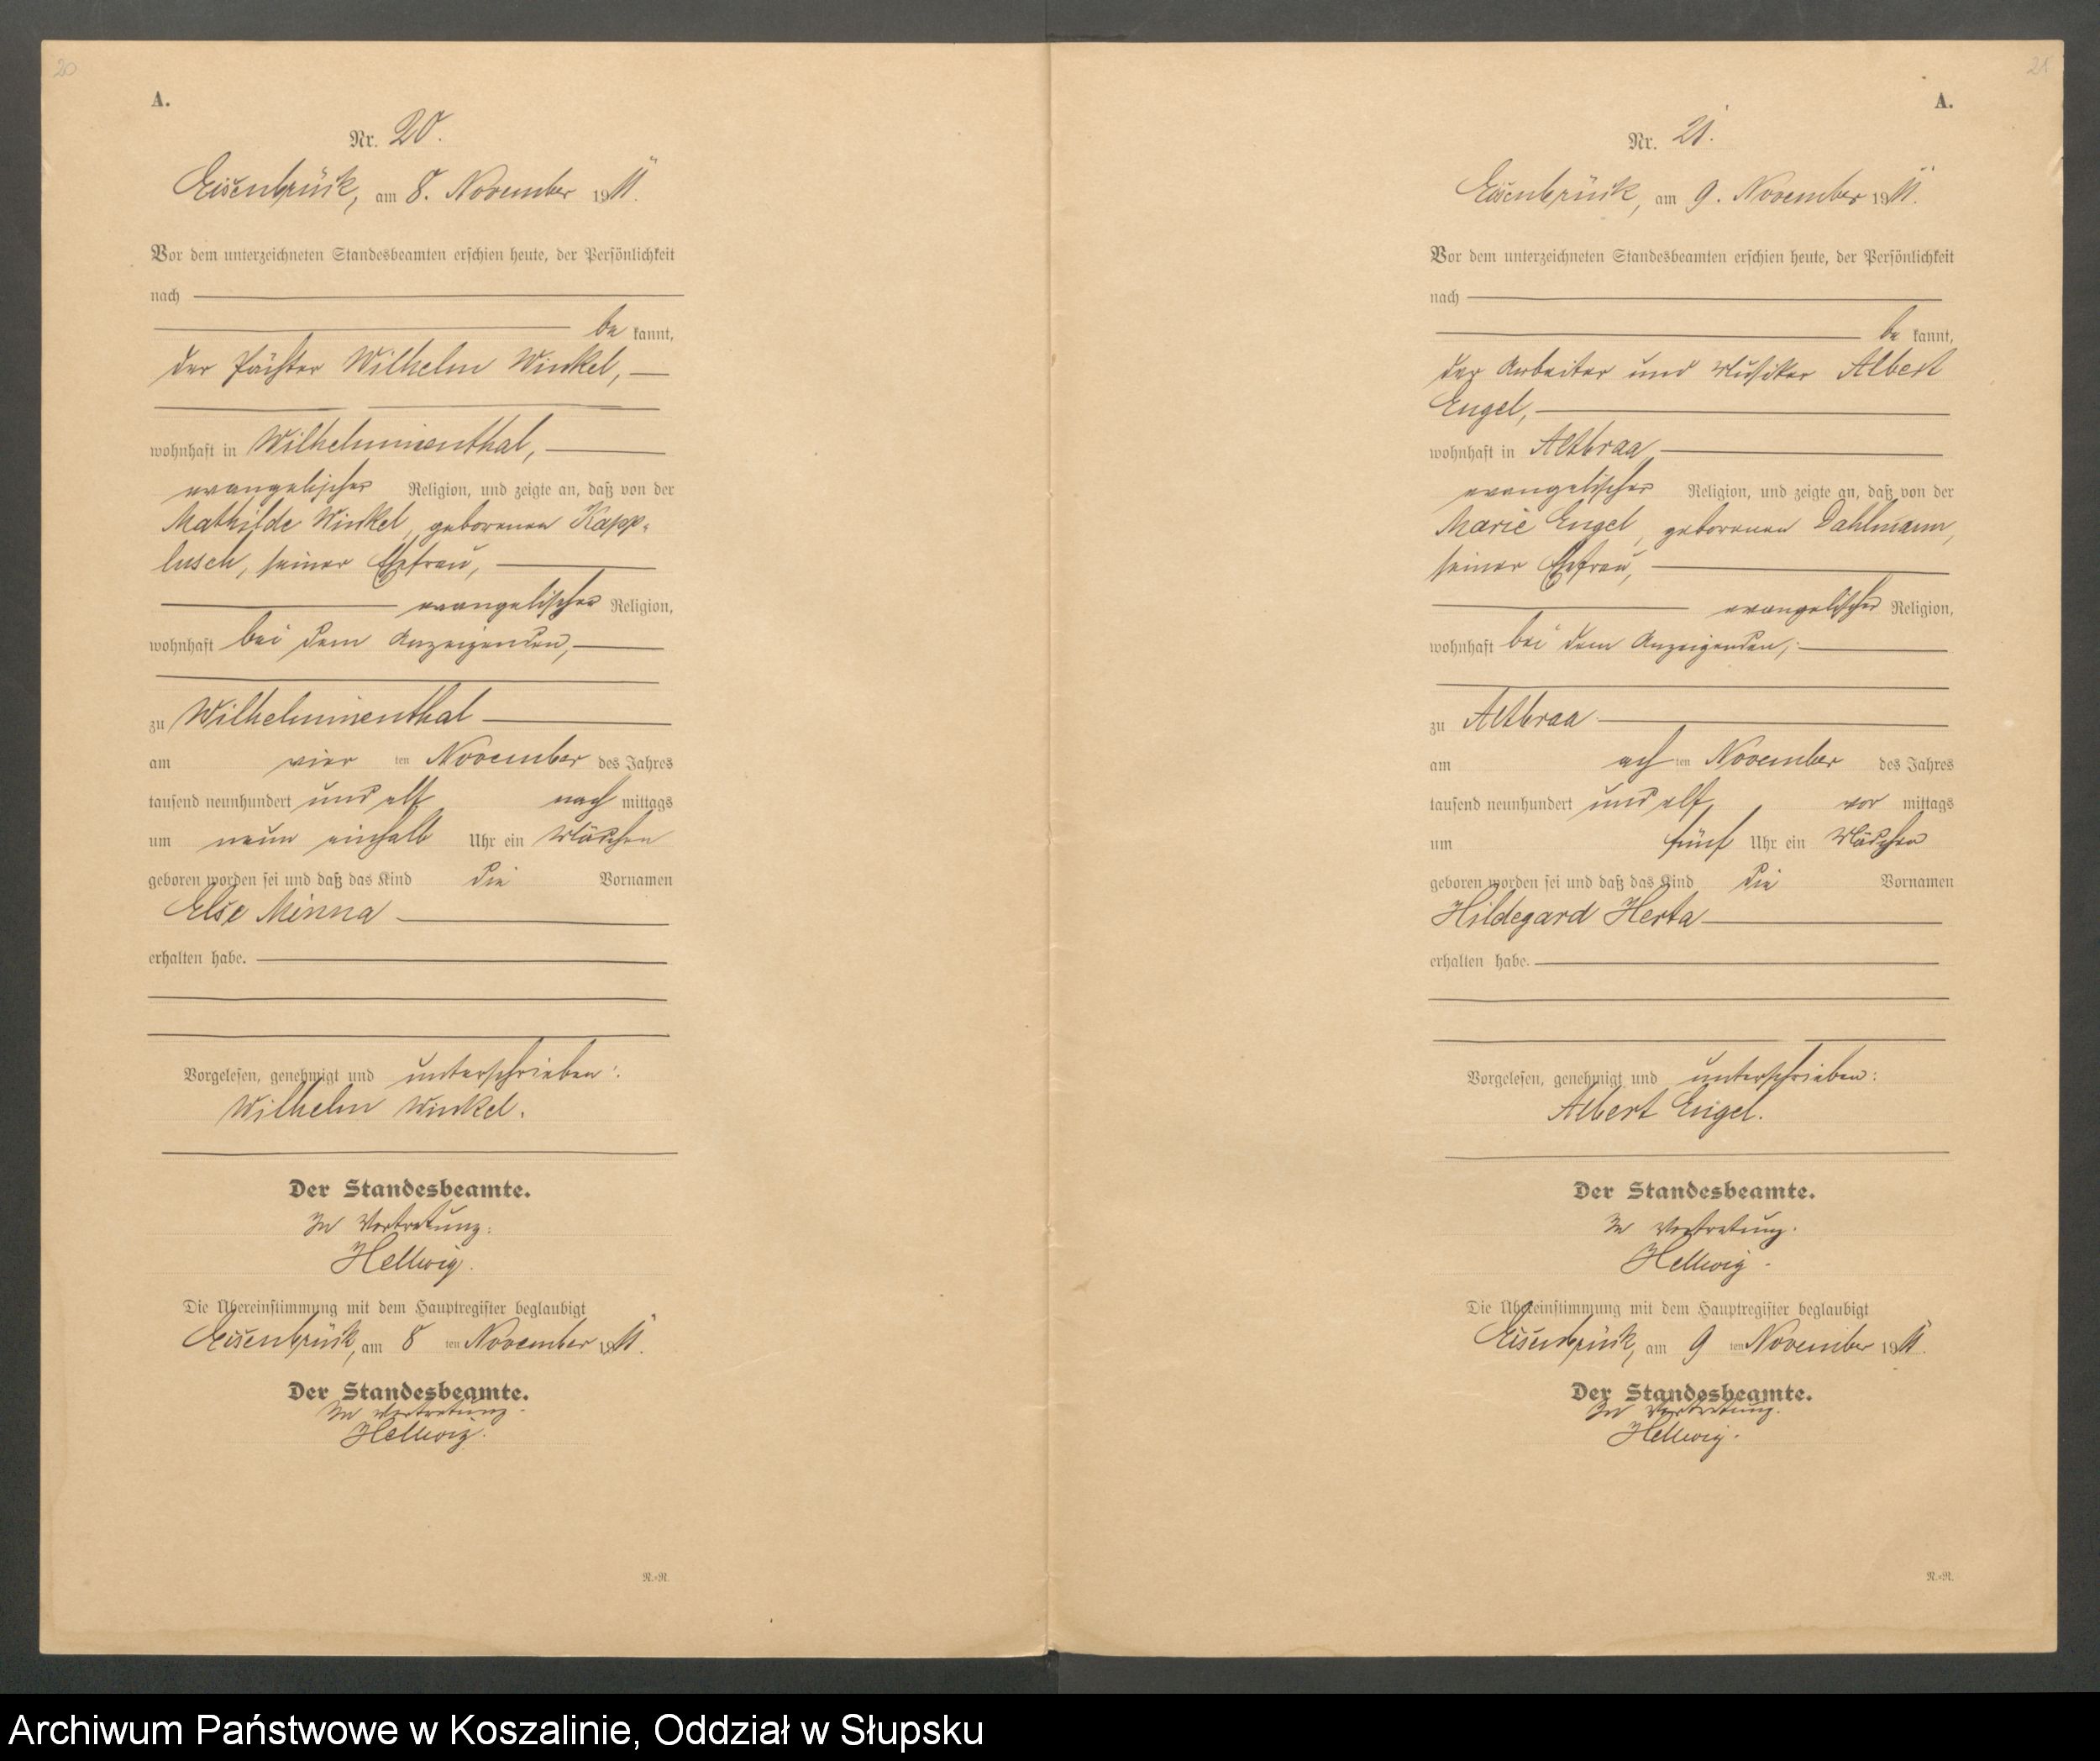 20
A.
Nr. 20.
Eisenbrück, am 8. November 1911.
Vor dem unterzeichneten Standesbeamten erschien heute, der Persönlichkeit
nach
be kannt,
der Pächter Wilhelm Winkel,
wohnhaft in Wilhelminenthal,
evangelischer Religion, und zeigte an, daß von der
Mathilde Winkel, geborenen Kapp-
lusch, seiner Ehefrau,
evangelischer Religion,
wohnhaft bei dem Anzeigenden,
zu Wilhelminenthal
am vier ten November des Jahres
tausend neunhundert und elf nach mittags
um neun einhalb Uhr ein Mädchen
geboren worden sei und daß das Kind die Vornamen
Else Minna
erhalten habe.
Vorgelesen, genehmigt und unterschrieben:
Wilhelm Winkel.
Der Standesbeamte.
In Vertretung:
Hellwig.
Die Übereinstimmung mit dem Hauptregister beglaubigt
Eisenbrück, am 8 ten November 1911.
Der Standesbeamte.
In Vertretung.
Hellwig.
R.-R.
21
A.
Nr. 21.
Eisenbrück, am 9. November 1911.
Vor dem unterzeichneten Standesbeamten erschien heute, der Persönlichkeit
nach
be kannt,
der Arbeiter und Musiker Albert
Engel,
wohnhaft in Altbraa
evangelischer Religion, und zeigte an, daß von der
Marie Engel, geborenen Dahlmann,
seiner Ehefrau,
evangelischer Religion,
wohnhaft bei dem Anzeigenden,
zu Altbraa
am ach ten November des Jahres
tausend neunhundert und elf, vor mittags
um fünf Uhr ein Mädchen
geboren worden sei und daß das Kind die Vornamen
Hildegard Herta
erhalten habe.
Vorgelesen, genehmigt und unterschrieben:
Albert Engel.
Der Standesbeamte.
In Vertretung.
Hellwig.
Die Übereinstimmung mit dem Hauptregister beglaubigt
Eisenbrück, am 9 ten November 1911.
Der Standesbeamte.
In Vertretung.
Hellwig.
R.-R.
Archiwum Państwowe w Koszalinie, Oddział w Słupsku